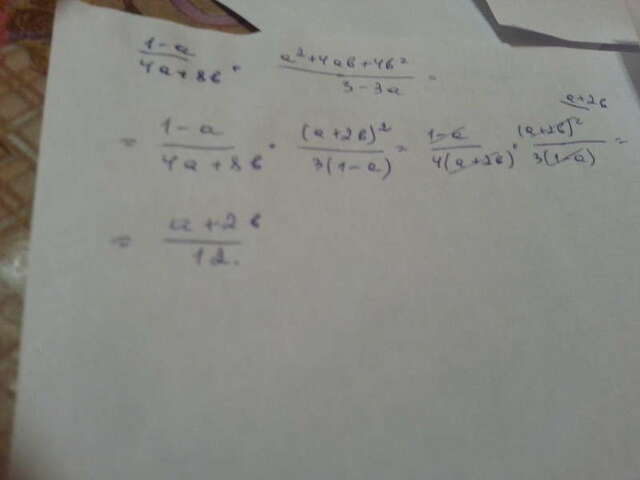 (1-a)/(4a+8b) · (a²+4ab+4b²)/(3-3a) =
= (1-a)/(4a+8b) · (a+2b)²/(3(1-a)) = (1-a)/(4(a+2b)) · (a+2b)²/(3(1-a)) =
a+2b
= (a+2b)/12.